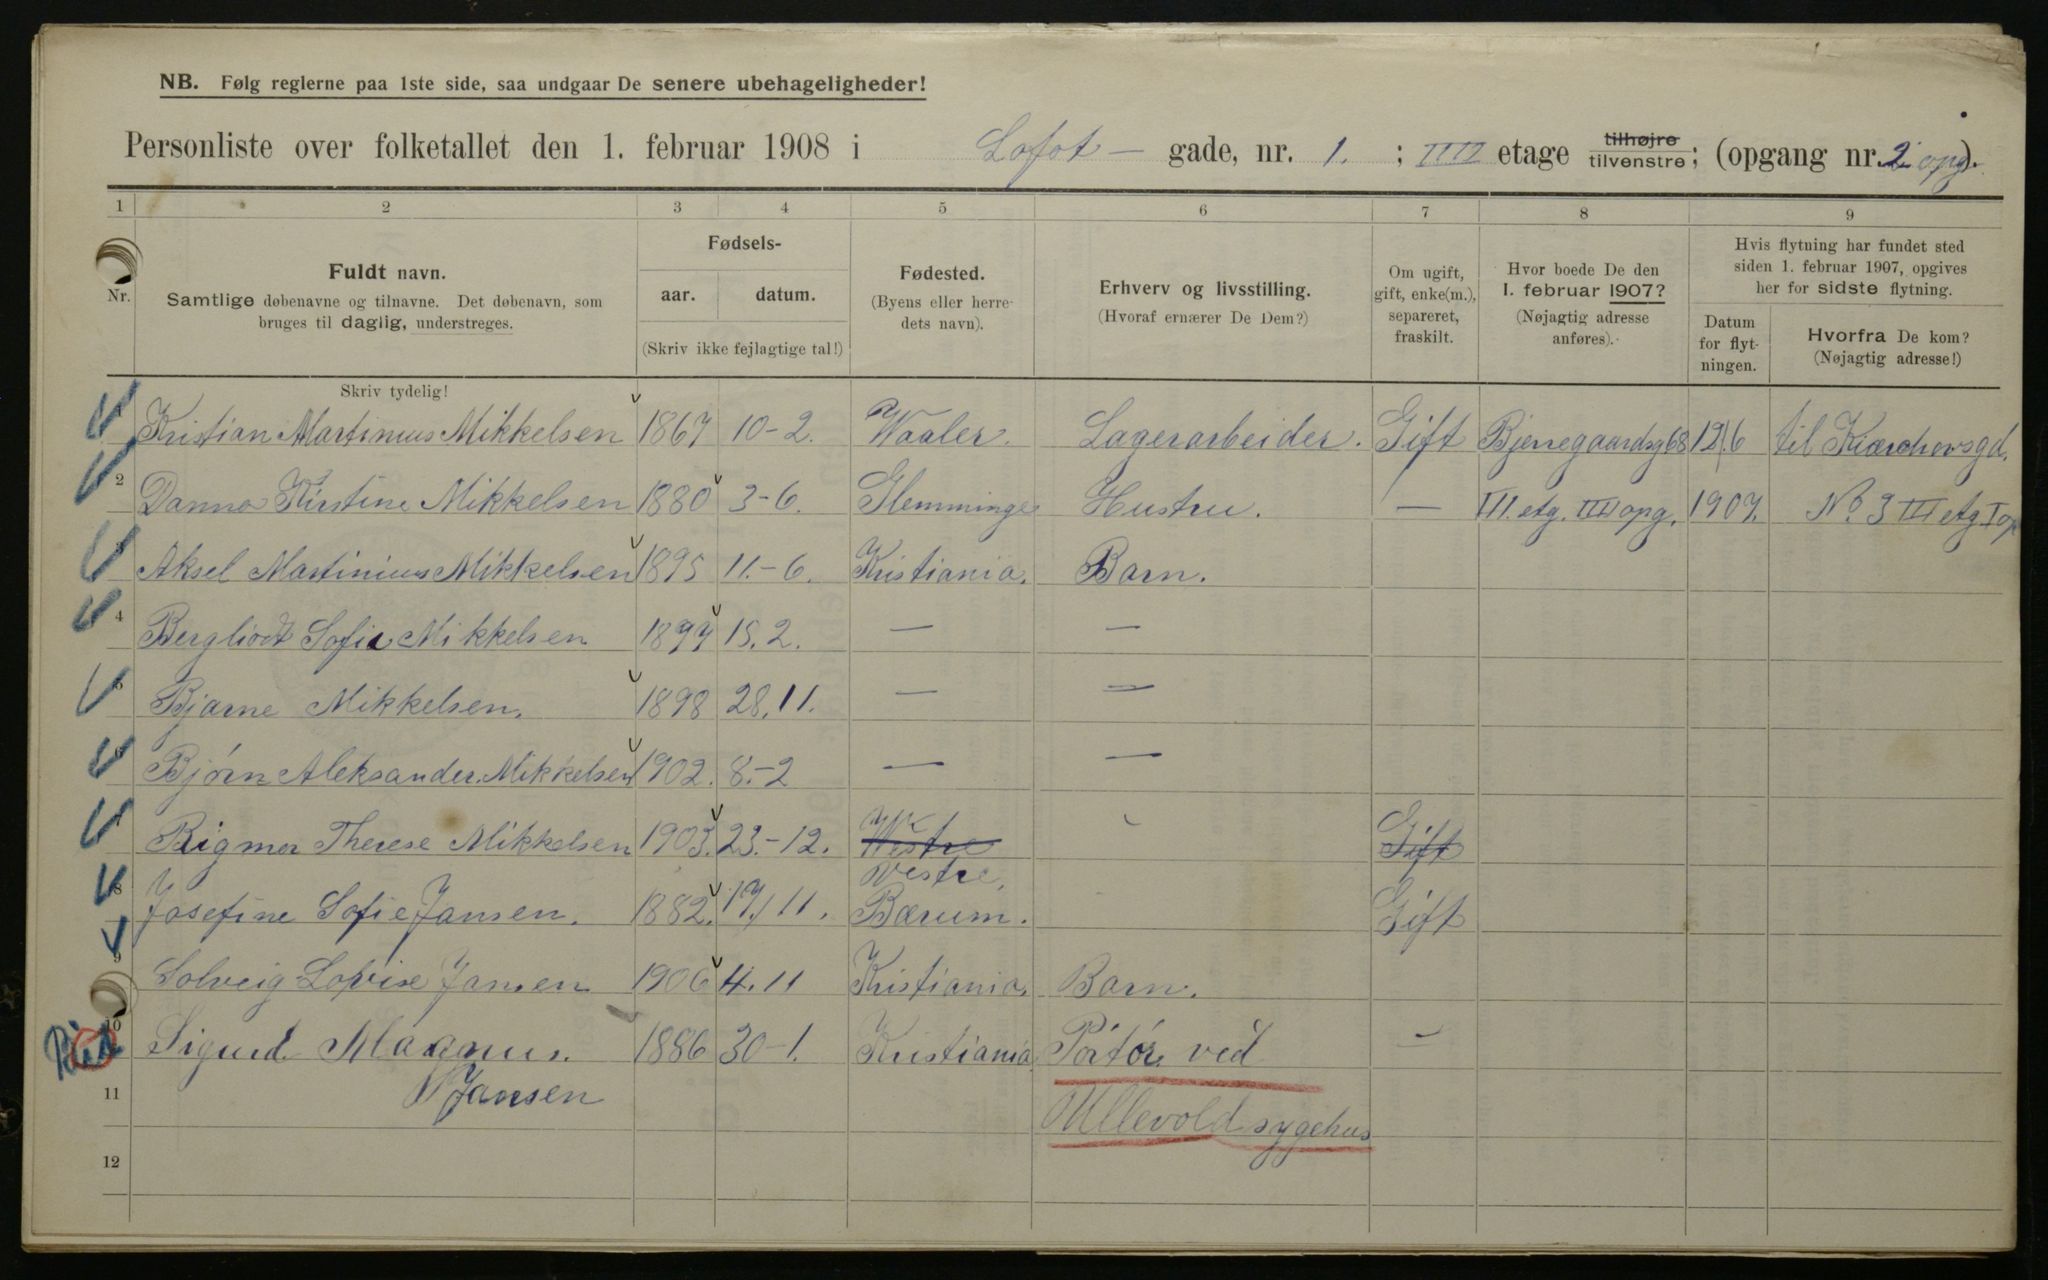 NB. Følg reglerne paa 1ste side, saa undgaar De senere ubehageligheder!
Personliste over folketallet den 1. februar 1908 i Lofot – gade, nr. 1. ; IIII etage tilhøjre tilvenstre; (opgang nr. 2 opg).
1 2 3 4 5 6 7 8 9
Nr.
Fuldt navn.
Samtlige døbenavne og tilnavne. Det døbenavn, som
bruges til daglig, understreges.
Skriv tydelig!
Fødsels-
aar. datum.
(Skriv ikke fejlagtige tal!)
Fødested.
(Byens eller herre-
dets navn).
Erhverv og livsstilling.
(Hvoraf ernærer De Dem?)
Om ugift,
gift, enke(m.),
separeret,
fraskilt.
Hvor boede De den
1. februar 1907?
(Nøjagtig adresse
anføres).
Hvis flytning har fundet sted
siden 1. februar 1907, opgives
her for sidste flytning.
Datum
for flyt-
ningen.
Hvorfra De kom?
(Nøjagtig adresse!)
Kristian Martinius Mikkelsen 1867 10-2. Waaler. Lagerarbeider. Gift Bjerregaardsg 68 12/6 til Kierchowsgd.
2 Danna Kirstine Mikkelsen 1880 3-6. Glemminge Hustru. — III. etg. IIII opg. 1907. No. 3 III etg. I op
3 Aksel Martinius Mikkelsen 1895 11.-6. Kristiania. Barn.
4 Bergliodt Sofie Mikkelsen 1897 15.2. — —
5 Bjarne Mikkelsen. 1898 28.11. — —
6 Bjørn Aleksander. Mikkelsen 1902. 8.-2 — —
7 Rigmor Therese Mikkelsen 1903. 23.-12. Westre Gift
Vestre,
8 Josefine Sofie Jansen. 1882. 17/11. Bærum. Gift
9 Solveig Lovise Jansen 1906 4.11 Kristiania, Barn.
10 Sigurd Magnus. 1886 30-1. Kristiania Portør ved —
11 Jansen
Ullevold sygehus
12